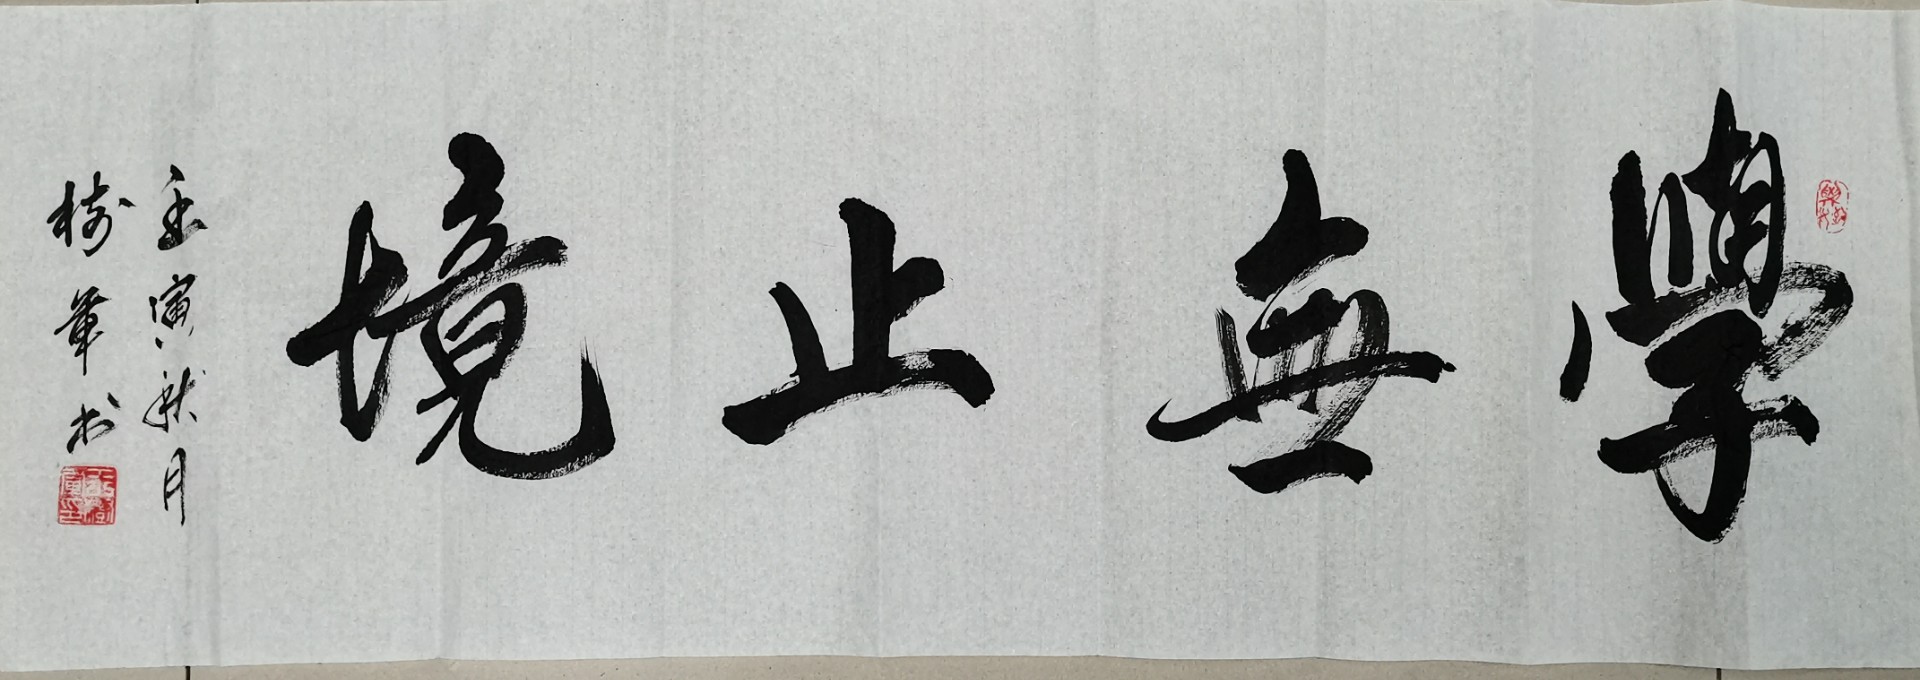 學無止境
壬寅秋月
樹華书